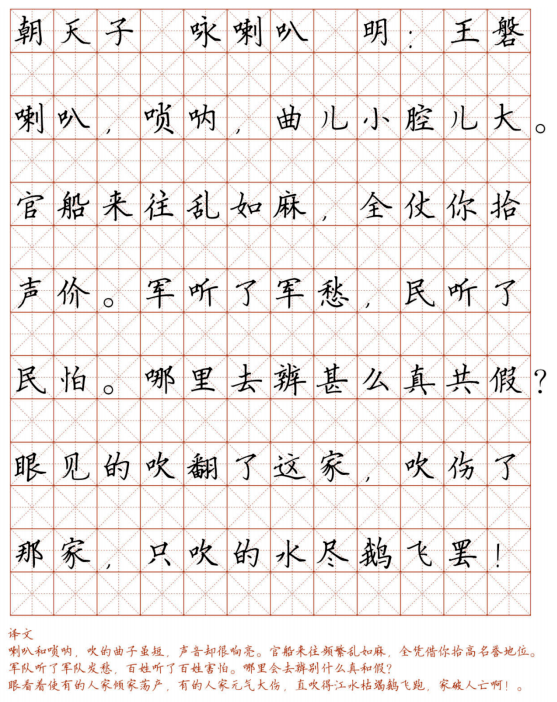 朝天子 咏喇叭 明：王磐
喇叭，唢呐，曲儿小腔儿大。
官船来往乱如麻，全仗你抬
声价。军听了军愁，民听了
民怕。哪里去辨甚么真共假？
眼见的吹翻了这家，吹伤了
那家，只吹的水尽鹅飞罢！
译文
喇叭和唢呐，吹的曲子虽短，声音却很响亮。官船来往频繁乱如麻，全凭借你抬高名誉地位。
军队听了军队发愁，百姓听了百姓害怕。哪里会去辨别什么真和假？
眼看着使有的人家倾家荡产，有的人家元气大伤，直吹得江水枯竭鹅飞跑，家破人亡啊！。